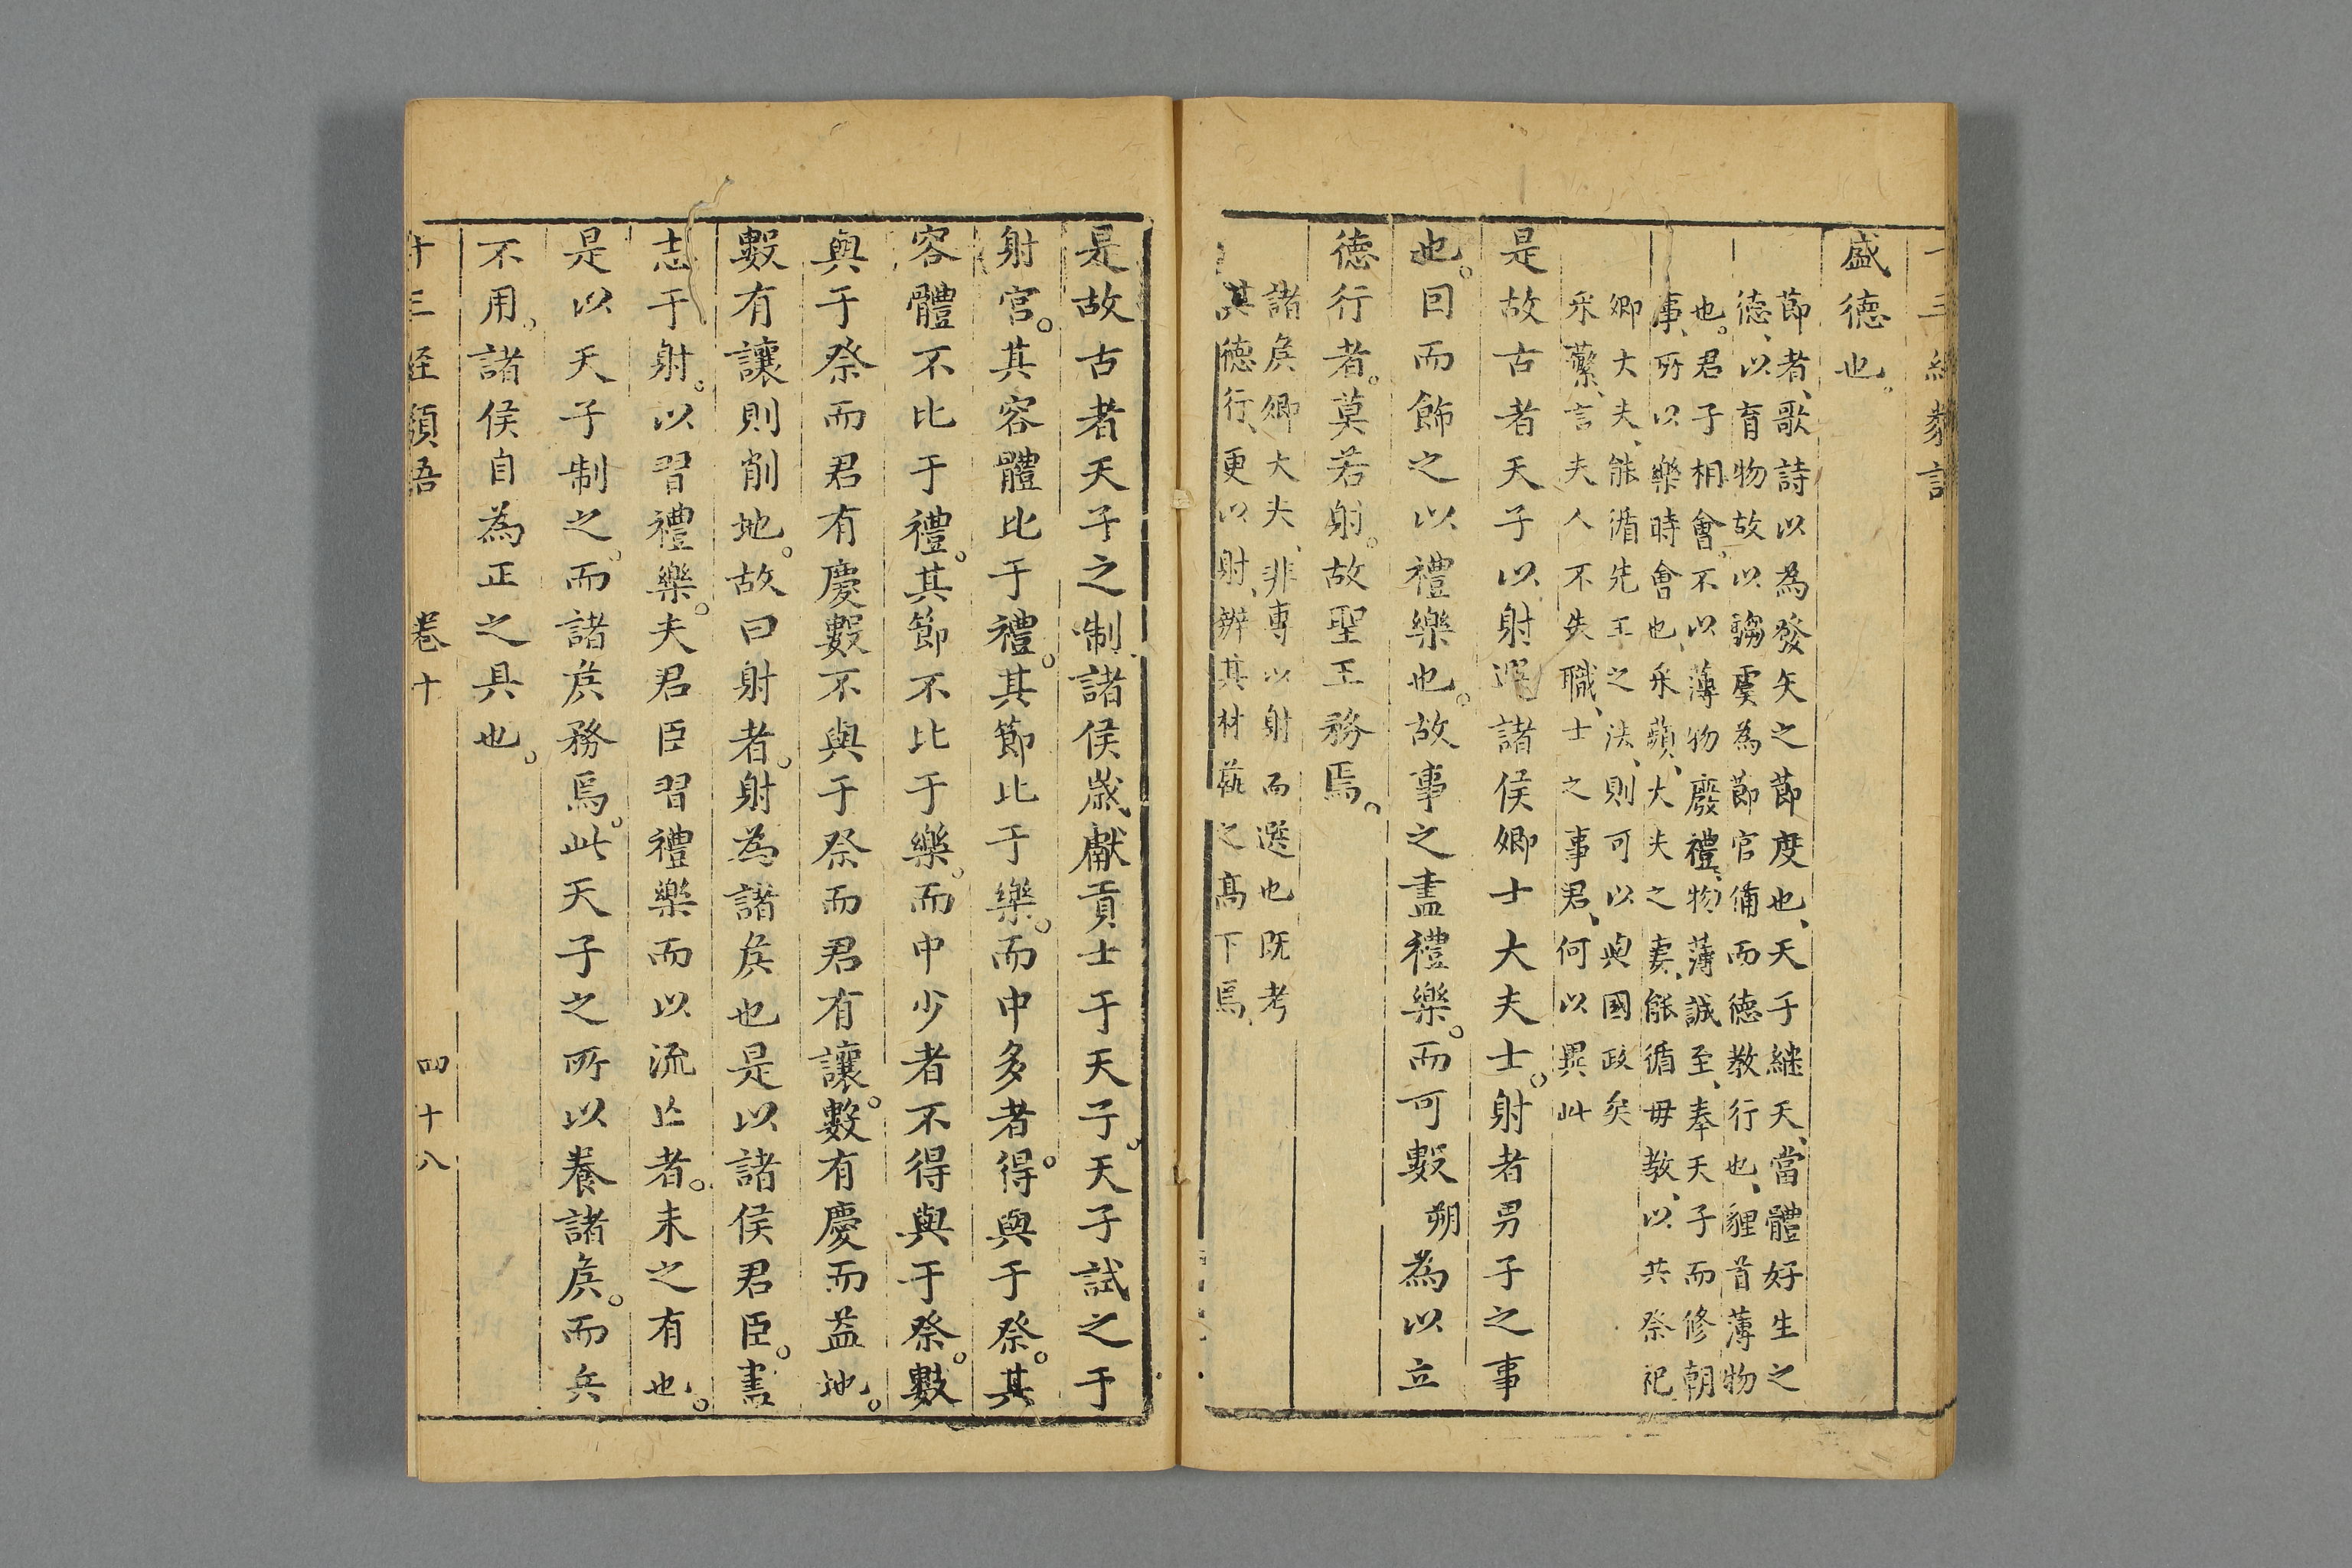 盛德也。
節者、歌詩以為發矢之節度也、天子繼天、當體好生之
德、以育物故以騶虞為節官備而德教行也、貍首薄物
也。君子相會、不以薄物廢禮、物薄誠至、奉天子而修朝
事、所以樂時會也、采蘋、大夫之妻、能循毋教、以共祭祀
卿大夫、能循先王之法、則可以與國政矣
采蘩、言夫人不失職、士之事君、何以異此
是故古者天子以射選諸侯卿士大夫士。射者男子之事
也。因而飾之以禮樂也。故事之盡禮樂。而可數朔為以立
德行者。莫若射。故聖王務焉。
諸矦卿大夫、非專以射而選也既考
其德行、更以射、辨其材藝之高下焉、
是故古者天子之制諸侯歲獻貢士于天子。天子試之于
射宮。其容體比于禮。其節比于樂。而中多者。得與于祭。其
容體不比于禮。其節不比于樂。而中少者不得與于祭。數
與于祭而君有慶數不與于祭而君有讓。數有慶而益地。
數有讓則削地。故曰射者。射為諸矦也是以諸侯君臣。盡
志于射。以習禮樂。夫君臣習禮樂而以流亡者。未之有也。
是以天子制之。而諸矦務焉。此天子之所以養諸矦。而兵
不用。諸侯自為正之具也。
十三 經 類語 卷十 四十八